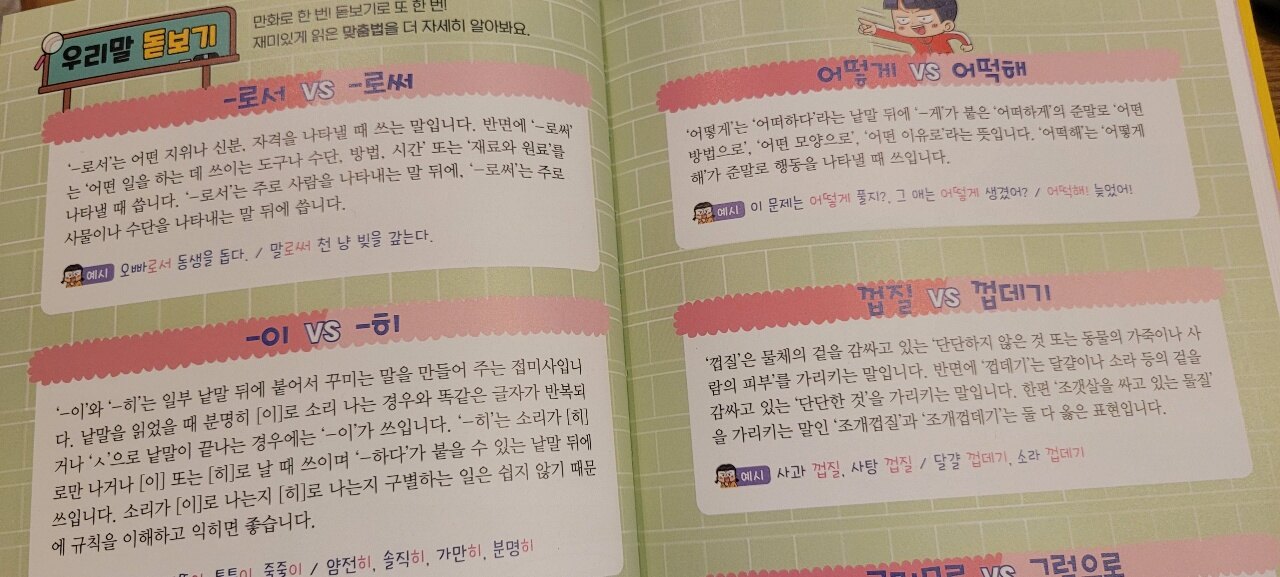 우리말 돋보기
만화로 한 번! 돋보기로 또 한 번!
재미있게 읽은 맞춤법을 더 자세히 알아봐요.
-로서 VS -로써
'-로서'는 어떤 지위나 신분, 자격을 나타낼 때 쓰는 말입니다. 반면에 '-로써'
는 '어떤 일을 하는 데 쓰이는 도구나 수단, 방법, 시간' 또는 '재료와 원료'를
나타낼 때 씁니다. '-로서'는 주로 사람을 나타내는 말 뒤에, '-로써'는 주로
사물이나 수단을 나타내는 말 뒤에 씁니다.
예시 오빠로서 동생을 돕다. / 말로써 천 냥 빚을 갚는다.
-이 VS -히
'-이'와 '-히'는 일부 낱말 뒤에 붙어서 꾸미는 말을 만들어 주는 접미사입니
다. 낱말을 읽었을 때 분명히 [이]로 소리 나는 경우와 똑같은 글자가 반복되
거나 'ㅅ'으로 낱말이 끝나는 경우에는 '-이'가 쓰입니다. '-히'는 소리가 [히]
로만 나거나 [이] 또는 [히]로 날 때 쓰이며 '-하다'가 붙을 수 있는 낱말 뒤에
쓰입니다. 소리가 [이]로 나는지 [히]로 나는지 구별하는 일은 쉽지 않기 때문
에 규칙을 이해하고 익히면 좋습니다.
줄줄이 / 얌전히, 솔직히, 가만히, 분명히
어떻게 VS 어떡해
'어떻게'는 '어떠하다'라는 낱말 뒤에 '-게'가 붙은 '어떠하게'의 준말로 '어떤
방법으로', '어떤 모양으로', '어떤 이유로'라는 뜻입니다. '어떡해'는 '어떻게
해'가 준말로 행동을 나타낼 때 쓰입니다.
예시 이 문제는 어떻게 풀지?, 그 애는 어떻게 생겼어? / 어떡해! 늦었어!
껍질 VS 껍데기
'껍질'은 물체의 겉을 감싸고 있는 '단단하지 않은 것 또는 동물의 가죽이나 사
람의 피부'를 가리키는 말입니다. 반면에 '껍데기'는 달걀이나 소라 등의 겉을
감싸고 있는 '단단한 것'을 가리키는 말입니다. 한편 '조갯살을 싸고 있는 물질'
을 가리키는 말인 '조개껍질'과 '조개껍데기'는 둘 다 옳은 표현입니다.
예시 사과 껍질, 사탕 껍질 / 달걀 껍데기, 소라 껍데기
VS 그럼으로